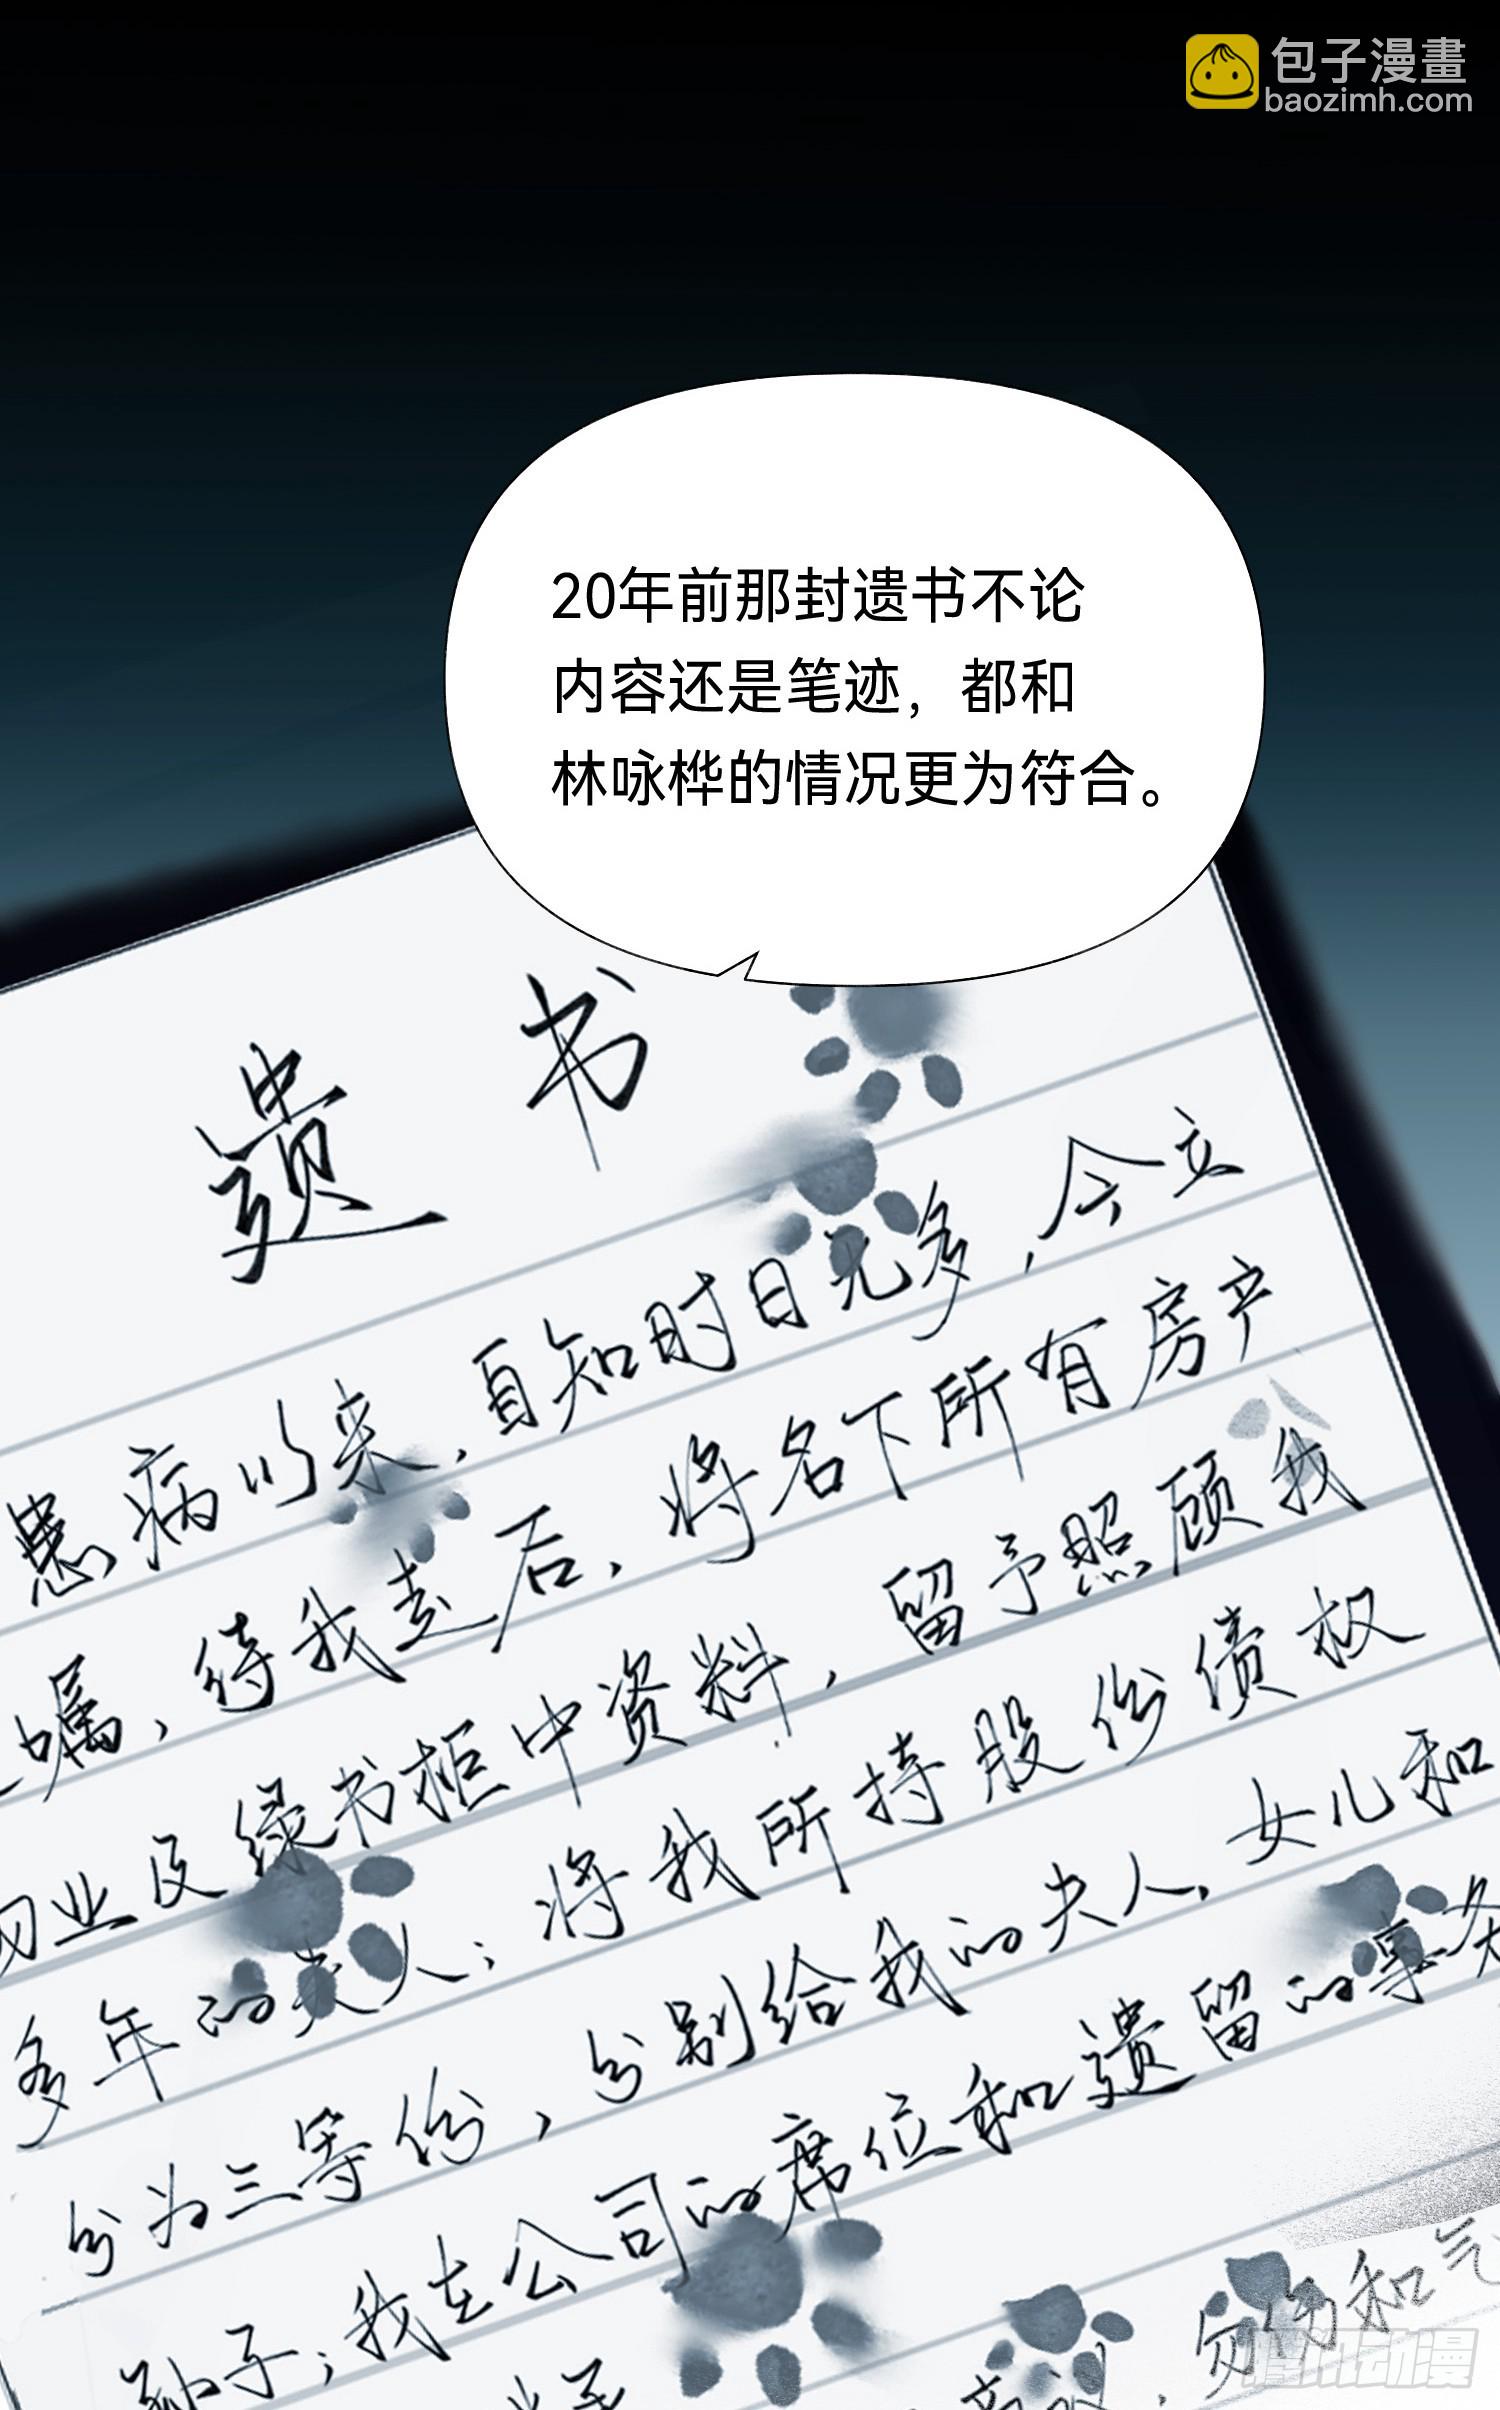 包子漫畫
baozimh.com
20年前那封遗书不论
内容还是笔迹，都和
林咏桦的情况更为符合。
遗书
患病以来，自知时日无多，今立
嘱，待我走后，将名下所有房产
物业及绿书柜中资料，留予照顾我
多年的夫人；将我所持股份债权
分为三等份，分别给我的夫人、女儿和
孙子；我在公司的席位和遗留的事务
腾讯动漫